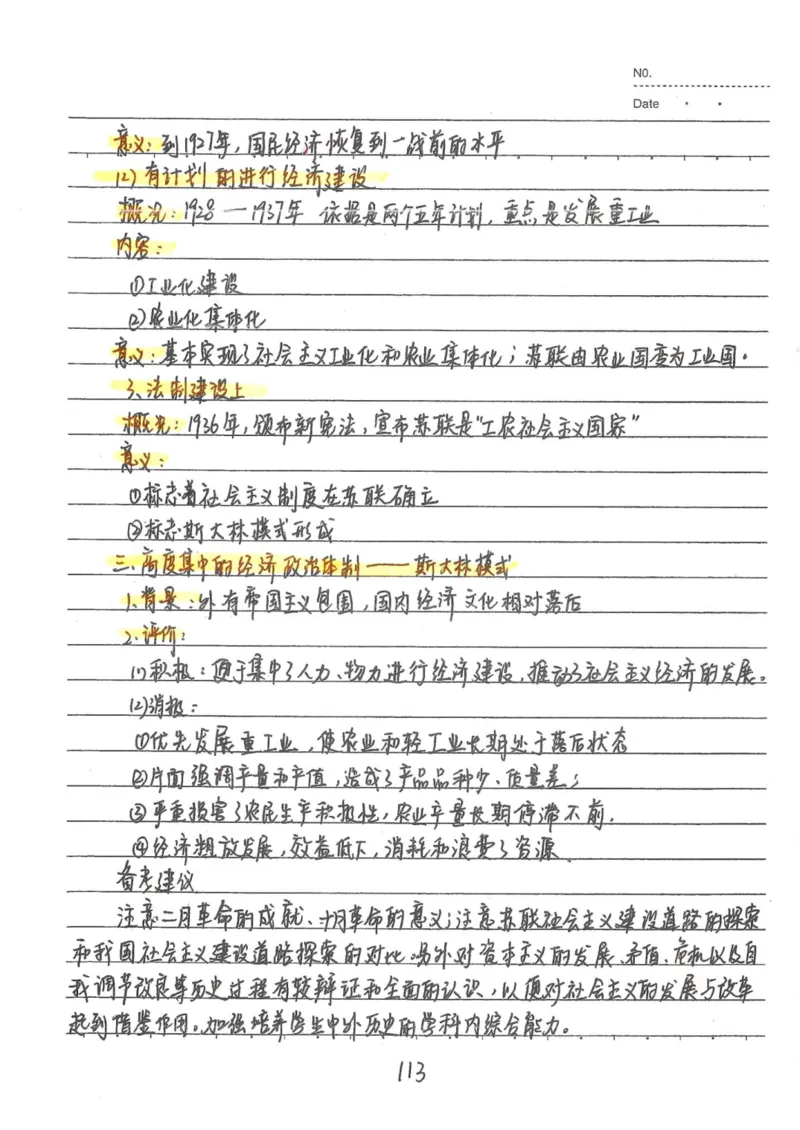 NO.
Date
意义：到1927年，国民经济恢复到一战前的水平
(2)有计划的进行经济建设
概况：1928—1937年 依据是两个五年计划，重点是发展重工业
内容：
①工业化建设
②农业化集体化
意义：基本实现了社会主义工业化和农业集体化；苏联由农业国变为工业国。
3、法制建设上
概况：1936年，颁布新宪法，宣布苏联是“工农社会主义国家”
意义：
①标志着社会主义制度在苏联确立
②标志斯大林模式形成
三、高度集中的经济政治体制——斯大林模式
1.背景：外有帝国主义包围，国内经济文化相对落后
2.评价：
(1)积极：便于集中了人力、物力进行经济建设，推动了社会主义经济的发展。
(2)消极：
①优先发展重工业，使农业和轻工业长期处于落后状态
②片面强调产量和产值，造成了产品品种少、质量差；
③严重损害了农民生产积极性，农业产量长期停滞不前.
④经济粗放发展，效益低下，消耗和浪费了资源
备考建议
注意二月革命的成就、十月革命的意义；注意苏联社会主义建设道路的探索
和我国社会主义建设道路探索的对比。另外对资本主义的发展、矛盾、危机以及自
我调节改良等历史过程有较辩证和全面的认识，以便对社会主义的发展与改革
起到借鉴作用。加强培养学生中外历史的学科内综合能力。
113